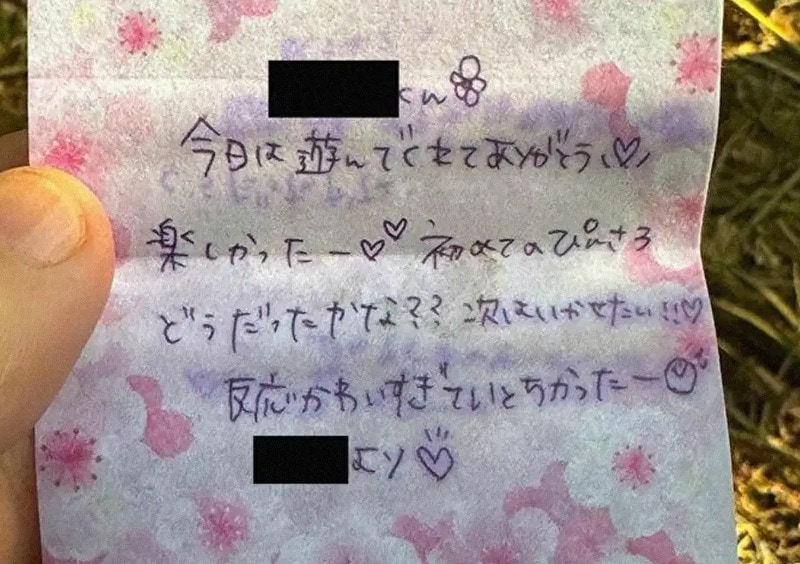 くん
今日は遊んでくれてありがとう、♡
楽しかったー♡♡ 初めてのぴんさろ
どうだったかな?? 次はいかせたい!!♡
反応かわいすぎていとちかったー
より♡